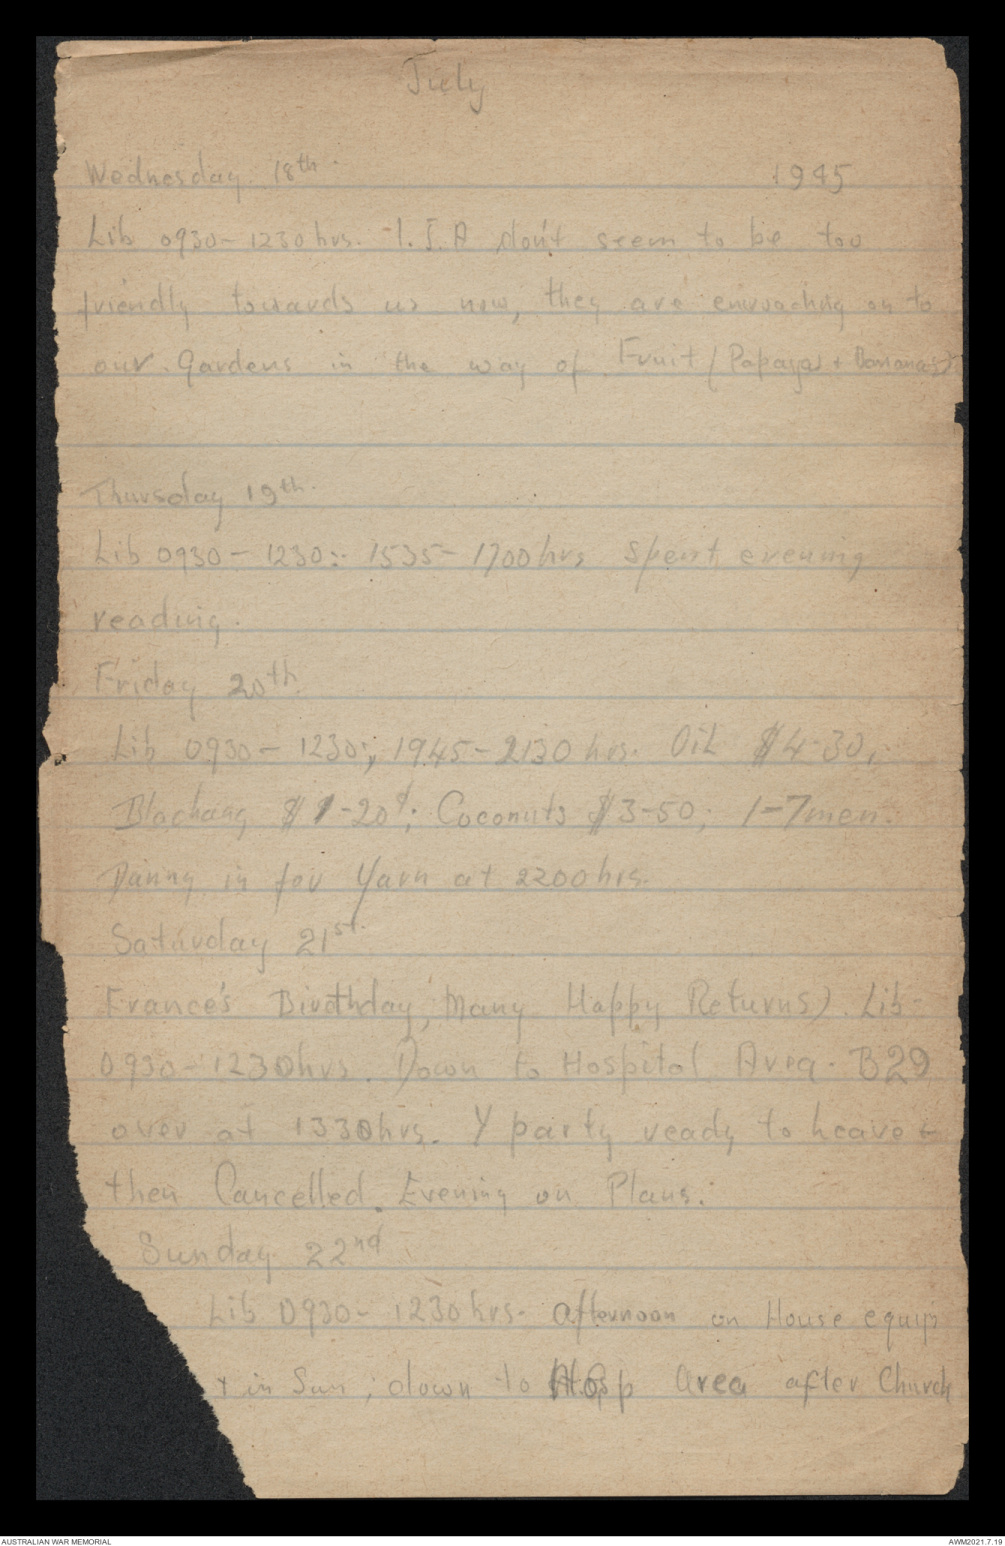 July
Wednesday 18th 1945
Lib 0930 - 1230 hrs. I.I.A don't seem to be too
friendly towards us now, they are encroaching on to
our Gardens in the way of Fruit (Papayas + Bananas)
Thursday 19th.
Lib 0930 - 1230:- 1535 - 1700 hrs Spent evening
reading.
Friday 20th
Lib 0930 - 1230; 1945 - 2130 hrs. Oil $4-30,
Blachang $1-20; Coconuts $3-50; 1-7 men.
Danny in for Yarn at 2200 hrs.
Saturday 21st.
France's Birthday, Many Happy Returns). Lib
0930 - 1230 hrs. Down to Hospital Area. B29
over at 1330 hrs. Y party ready to leave +
then Cancelled. Evening on Plans.
Sunday 22nd
Lib 0930 - 1230 hrs. afternoon on House equip
+ in Sun, down to Hosp area after Church
AUSTRALIAN WAR MEMORIAL AWM2021.7.19